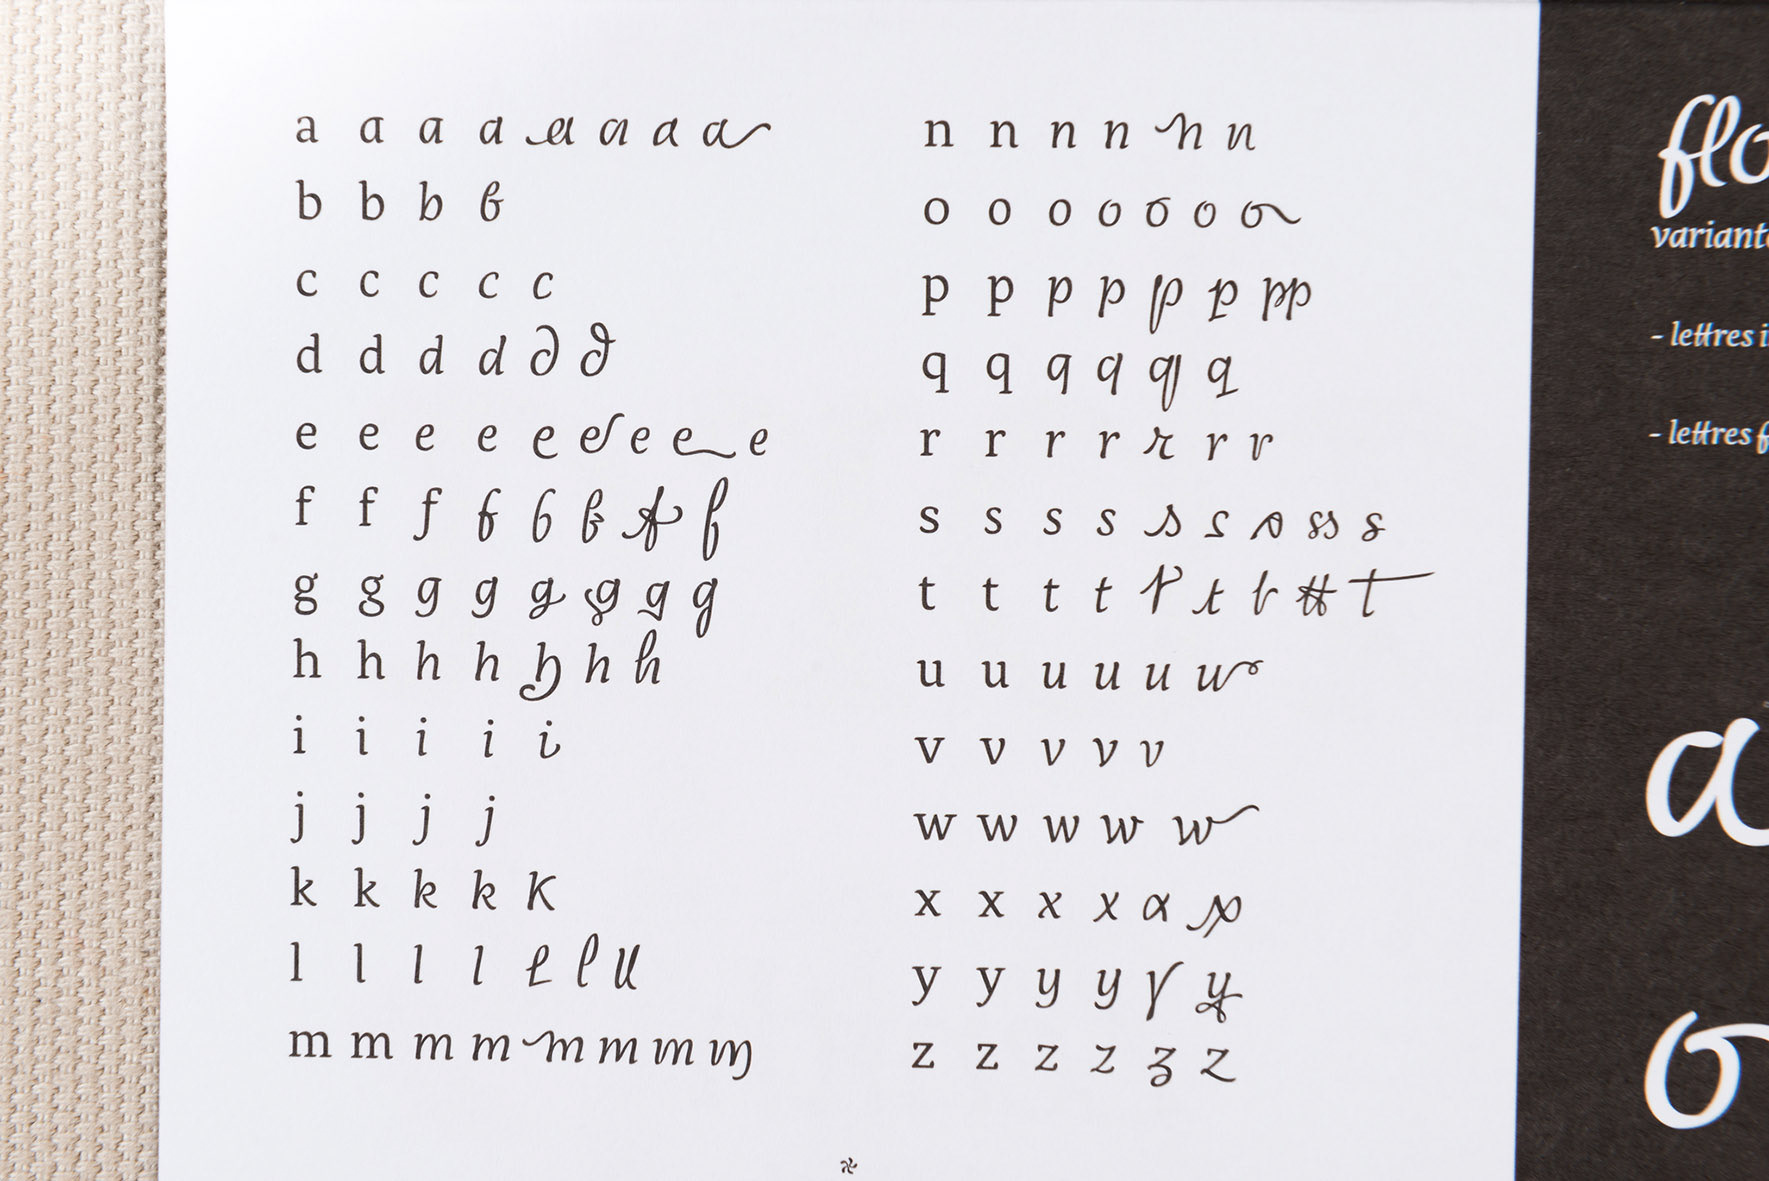 a a a a a a a a
b b b b
c c c c c
d d d d d d
e e e e e e e e e
f f f f f f f f
g g g g g g g g
h h h h h h h
i i i i i
j j j j
k k k k K
l l l l l l ll
m m m m m m m m
n n n n n n
o o o o o o o
p p p p p p pp
q q q q q q
r r r r r r r
s s s s s s s ss s
t t t t t t t tt t
u u u u u u
v v v v v
w w w w w
x x x x x x
y y y y y y
z z z z z z
flo
variant
- lettres
- lettres
a
o